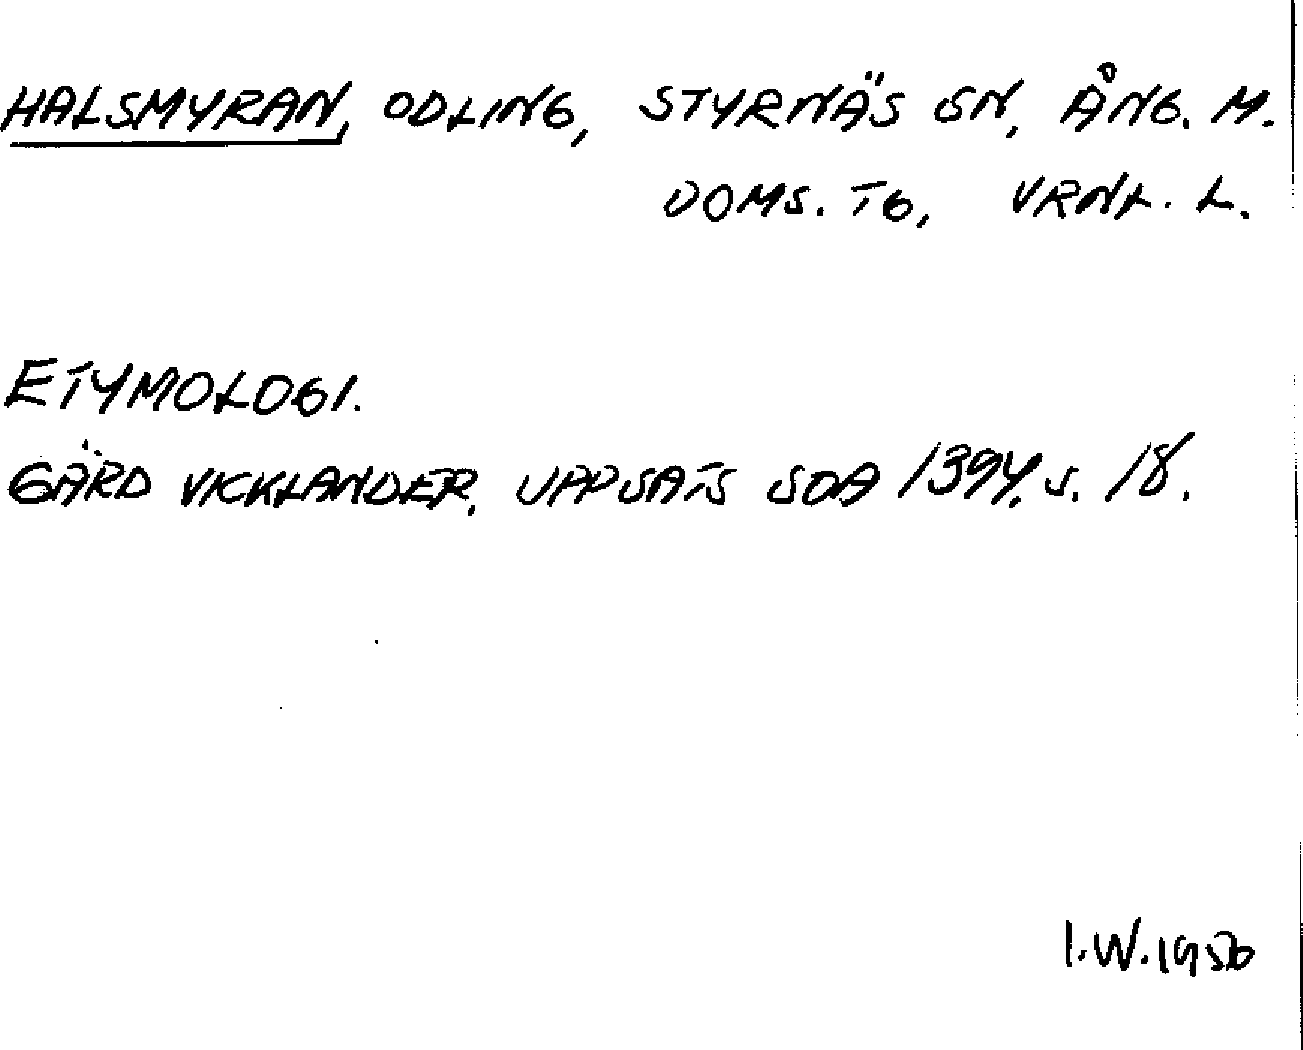 HALSMYRAN, ODLING, STYRNÄS SN, ÅNG. M.
DOMS. TG, VRNL. L.
ETYMOLOGI.
GÄRD VICKLANDER, UPPSATS SOA 1394, S. 18.
I.W. 1956